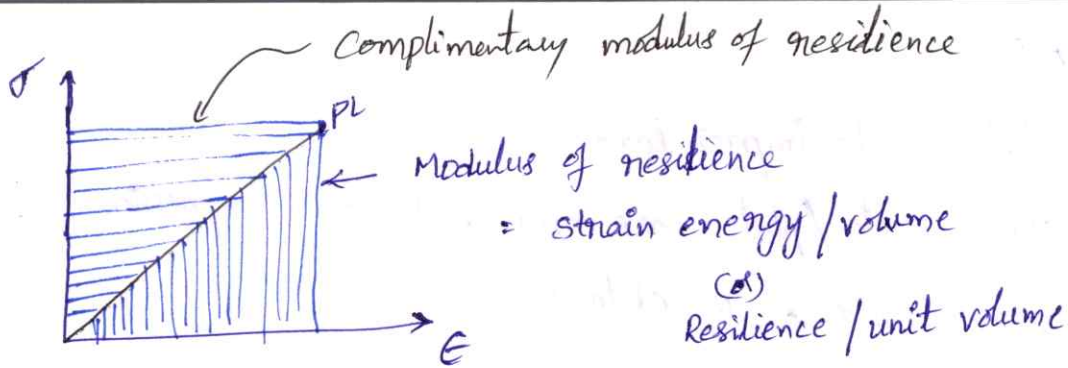 Complimentary modulus of resilience
σ
PL
Modulus of resilience
= strain energy/volume
(or)
Resilience / unit volume
ε